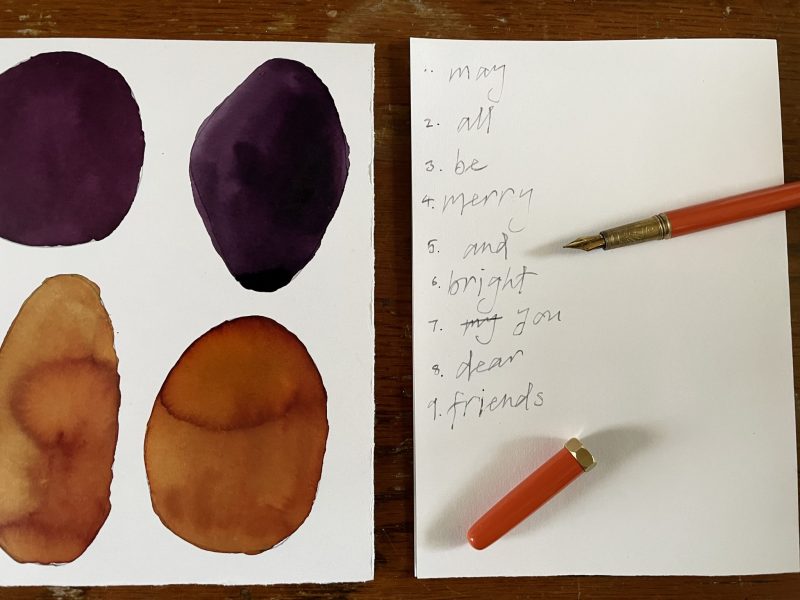 .. may
2. all
3. be
4. merry
5. and
6. bright
7. my you
8. dear
9. friends